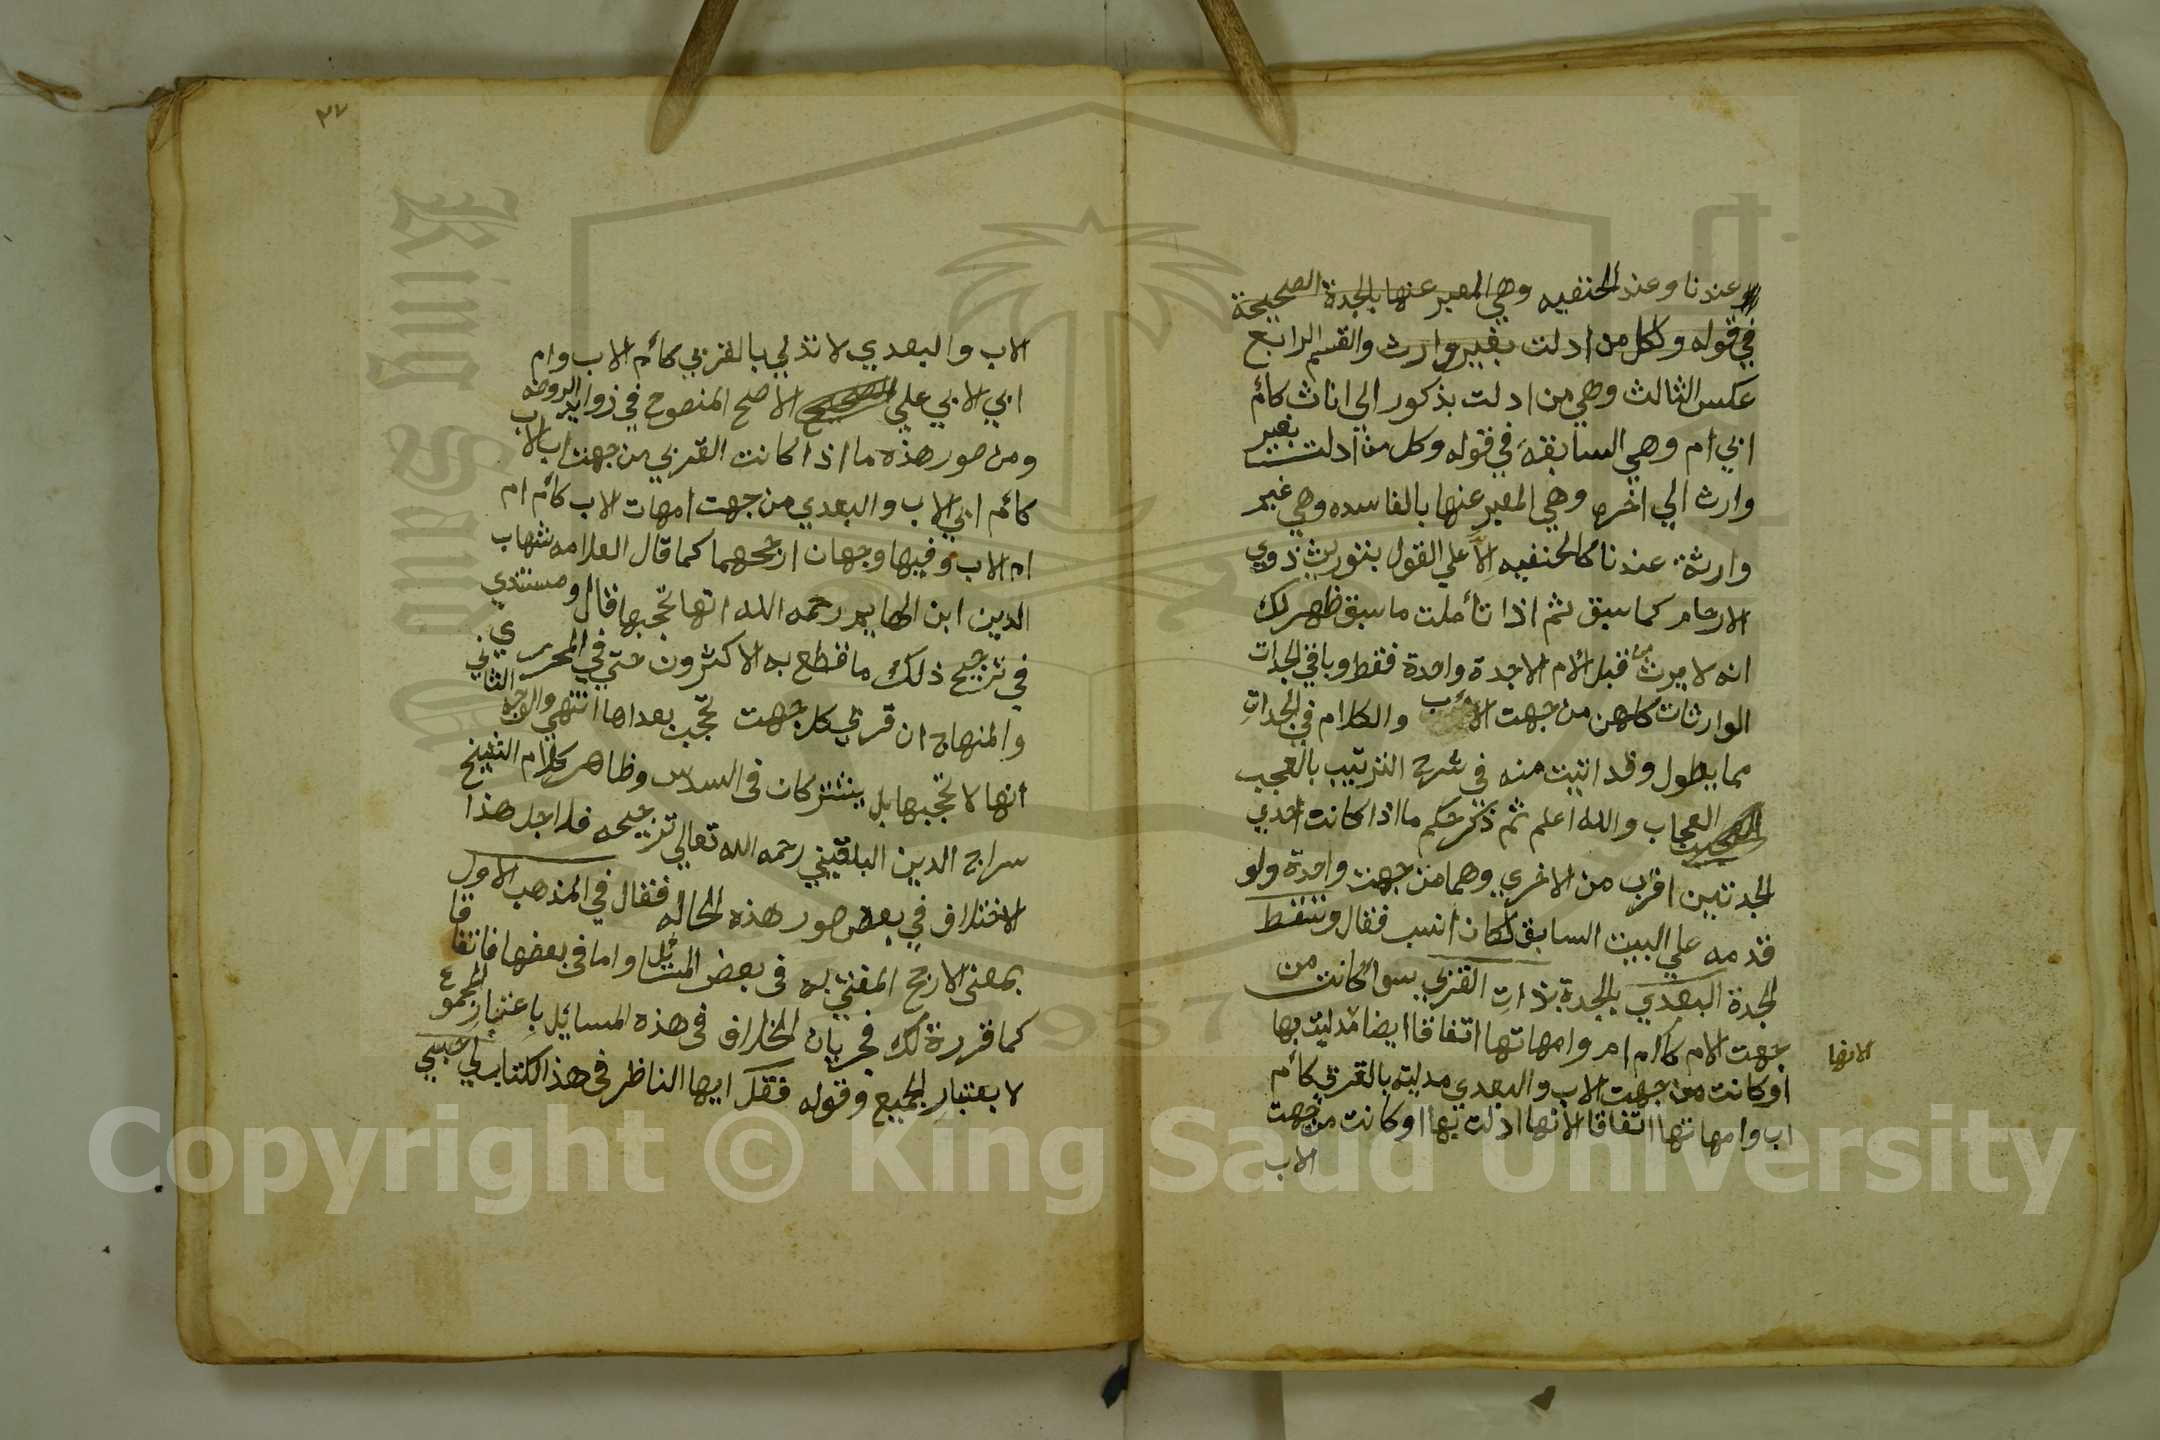 عندنا وعند الحنفيه وهي المعبر عنها بالجدة الصحيحة
في قوله وكل من ادلت بغير وارث والقسم الرابع
عكس الثالث وهي من ادلت بذكور الي اناث كأم
ابي ام وهي السابقة في قوله وكل من ادلت بغير
وارث الي اخره وهي المعبر عنها بالفاسده وهي غير
وارثة عندنا كالحنفيه الا علي القول بتوريث ذوي
الارحام كما سبق ثم اذا تأملت ما سبق ظهر لك
انه لا يرث من قبل الام الا جدة واحدة فقط وباقي الجدات
الوارثات كلهن من جهت الأب والكلام في الجدات
مما يطول وقد اتيت منه في شرح الترتيب بالعجب
العجاب والله اعلم ثم ذكر حكم ما اذا كانت احدي
الجدتين اقرب من الاخري وهما من جهت واحدة ولو
قدمه علي البيت السابق لكان انسب فقال وتسقط
الجدة البعدي بالجدة بذات القربي سوا كانت من
جهت الام كأم ام وامهاتها اتفاقا ايضا مدليت بها
لانها
او كانت من جهت الاب والبعدي مدليه بالقربي كأم
اب وامهاتها اتفاقا لأنها ادلت بها او كانت من جهت
الاب
٣٧
الاب والبعدي لا تدلي بالقربي كأم الاب وام
ابي الابي علي الاصح المنصوح في زوايد الروضه
ومن صور هذه ما اذا كانت القربي من جهت اب الاب
كأم ابي الاب والبعدي من جهت امهات الاب كأم ام
ام الاب وفيها وجهان ارجحهما كما قال العلامه شهاب
الدين ابن الهايم رحمه الله انها تحجبها قال ومستندي
في ترجيح ذلك ما قطع به الاكثرون حتي في المحرر
والمنهاج ان قربي كل جهت تحجب بعداها انتهي والوجه الثاني
انها لا تحجبها بل يشتركان في السدس وظاهر كلام الشيخ
سراج الدين البلقيني رحمه الله تعالي ترجيحه فلاجل هذا
الاختلاف في بعض صور هذه الحاله فقال في المذهب الاول
بمعني الارجح المفتي به في بعض المسائل واما في بعضها فاتفاقا
كما قررة لك فجريان الخلاف في هذه المسائل باعتبار المجموع
لا بعتبار الجميع وقوله فقل ايها الناظر في هذا الكتاب لي حسبي
Copyright © King Saud University
King Saud U
1957